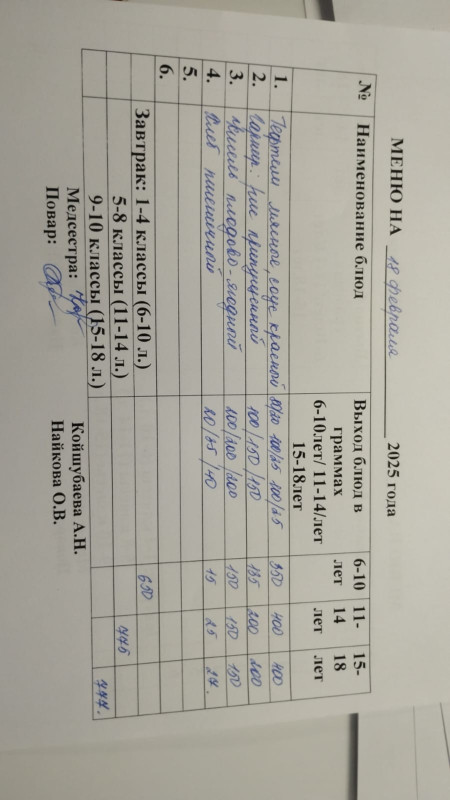 МЕНЮ НА 18 февраля 2025 года
№ Наименование блюд Выход блюд в граммах 6-10лет/ 11-14/лет 15-18лет 6-10 лет 11-14 лет 15-18 лет
1. Тефтели мясные, соус красный 80/20 100/25 100/25 350 400 400
2. Гарнир: рис припущенный 100/150/150 135 200 200
3. Кисель плодово-ягодной 200/200/200 150 150 150
4. Хлеб пшеничной 20/35/40 15 25 27.
5.
6.
Завтрак: 1-4 классы (6-10 л.) 650
5-8 классы (11-14 л.) 775
9-10 классы (15-18 л.) 777.
Медсестра: Койшубаева А.Н.
Повар: Найкова О.В.